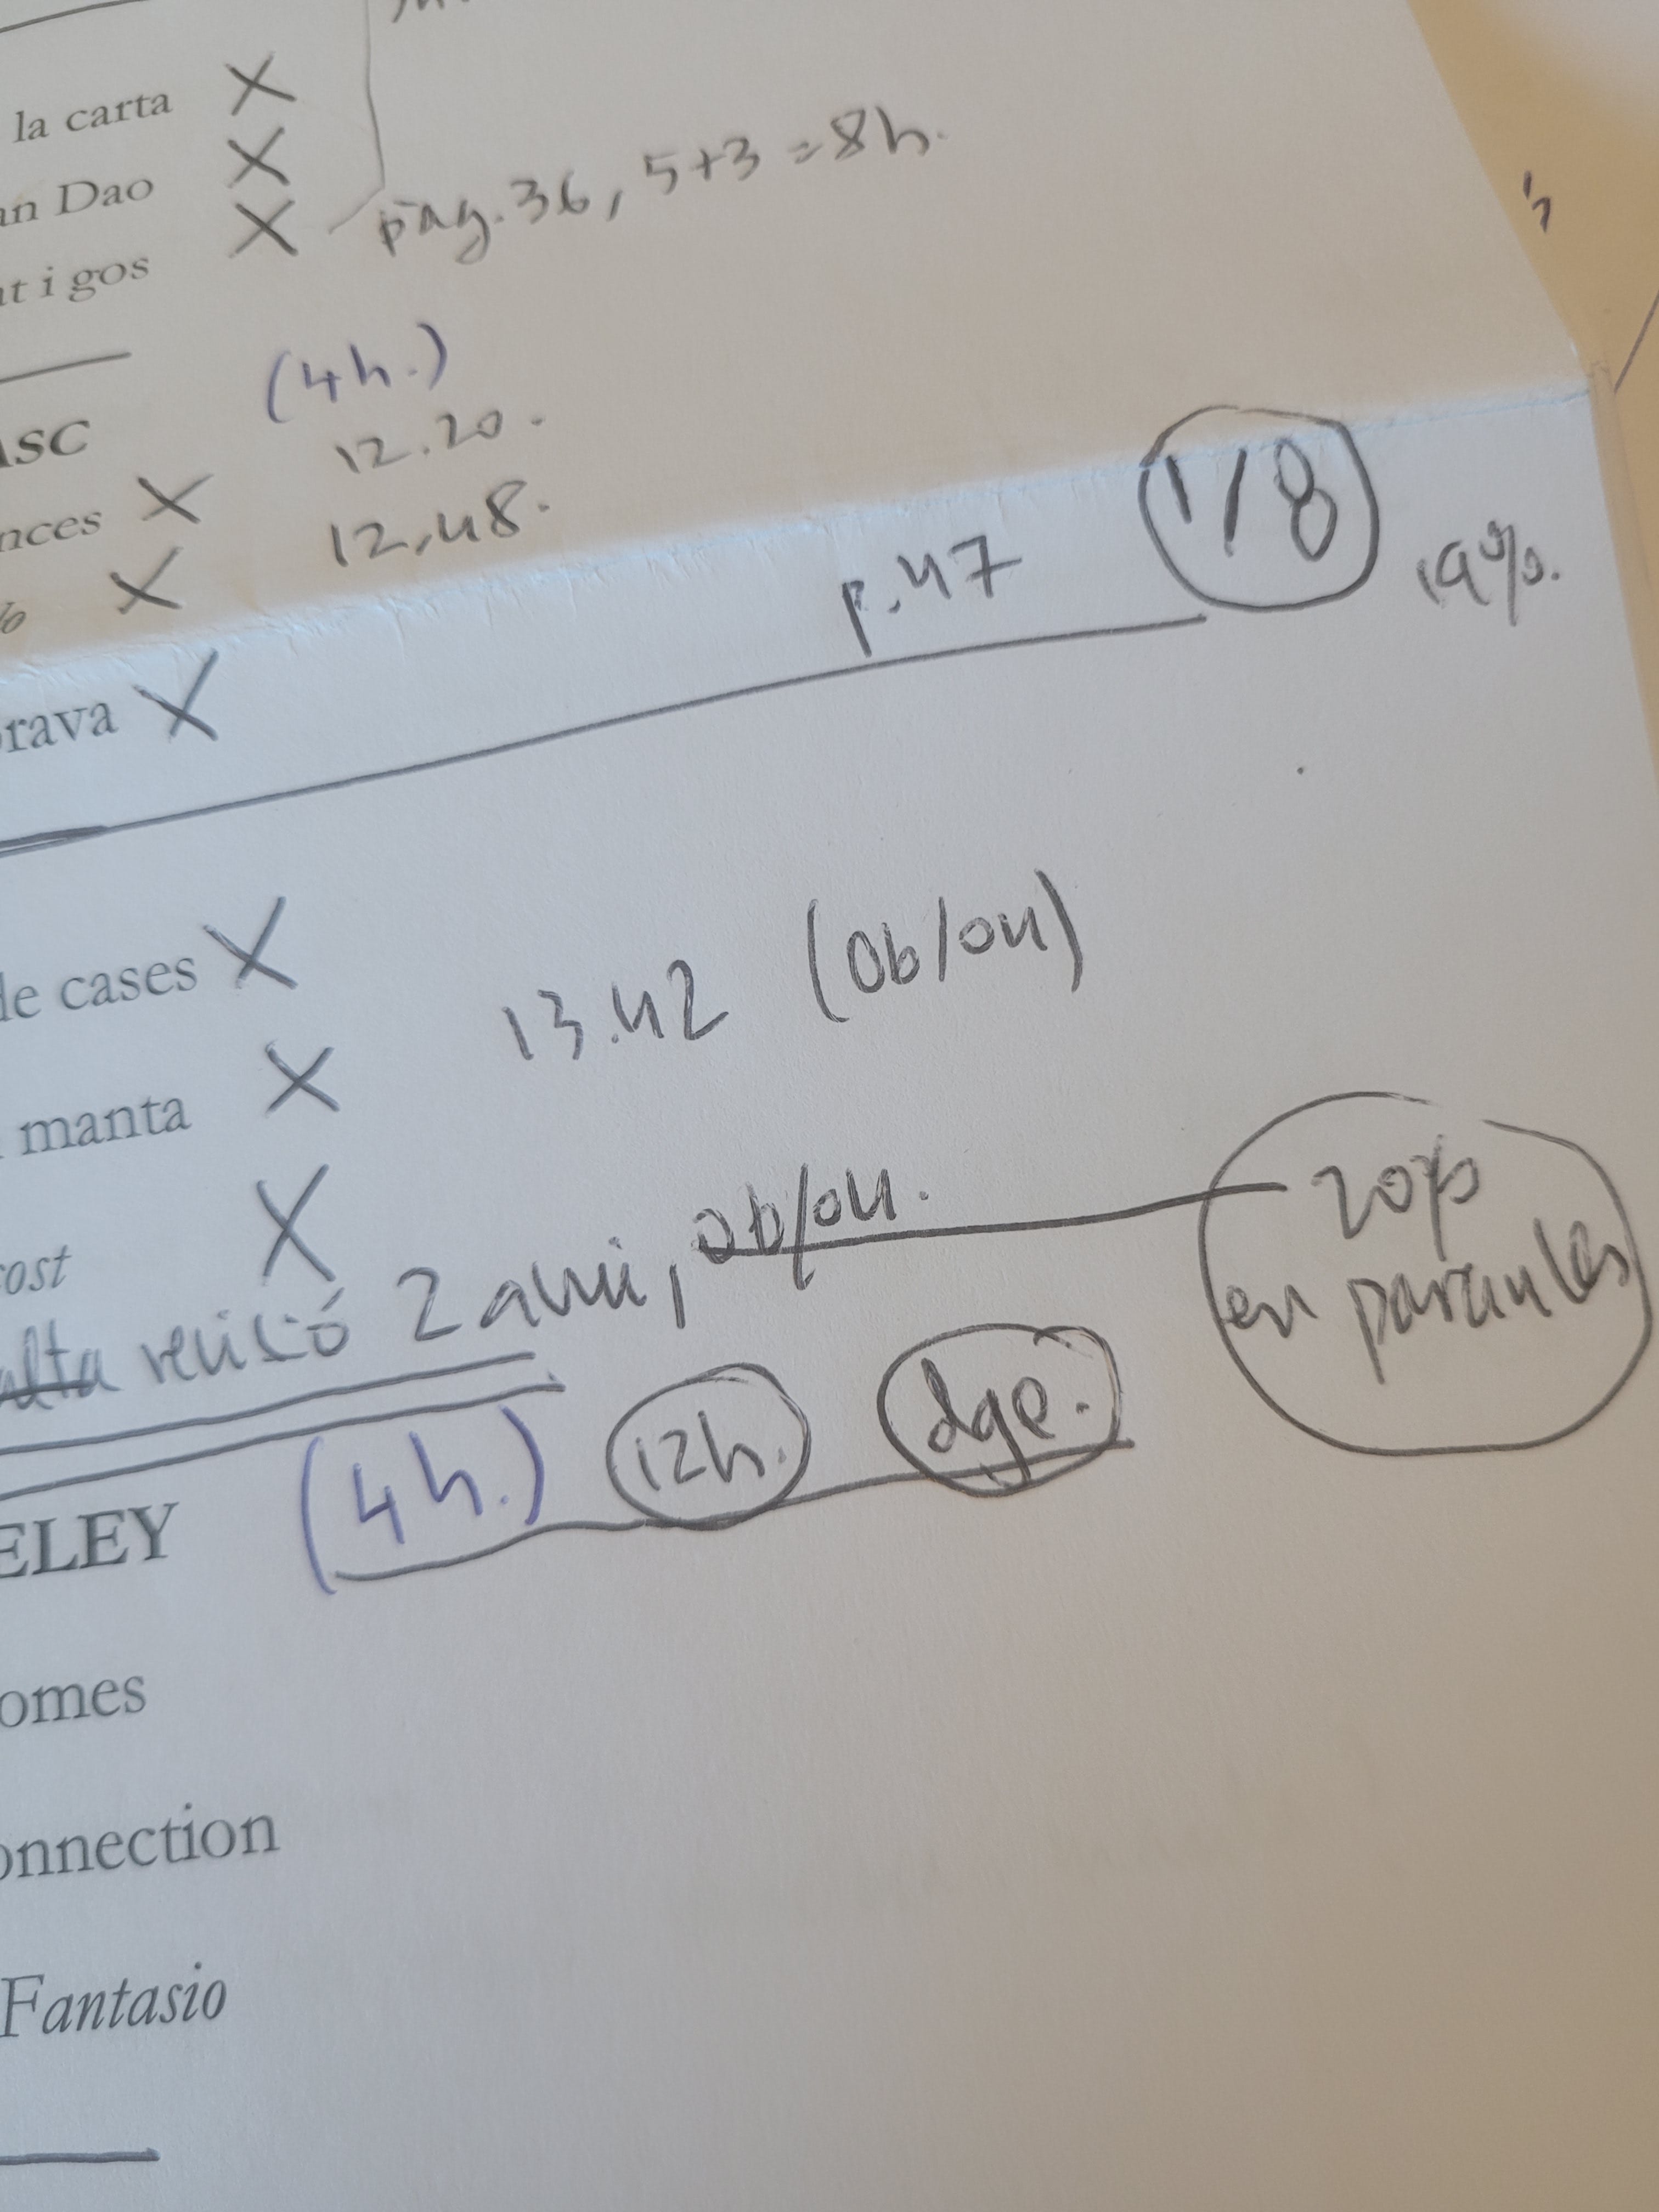 la carta X
an Dao X
at i gos X pàg. 36, 5+3 = 8h.
(4h.)
ASC 12.20.
nces X 12,48.
% X
p.47 1/8 19%.
rava X
de cases X 13.42 (ob/ou)
manta X
cost X
falta revisió 2 avui, ob/ou. 20% en paraules
ELEY (4h.) 12h. dge.
omes
onnection
Fantasio